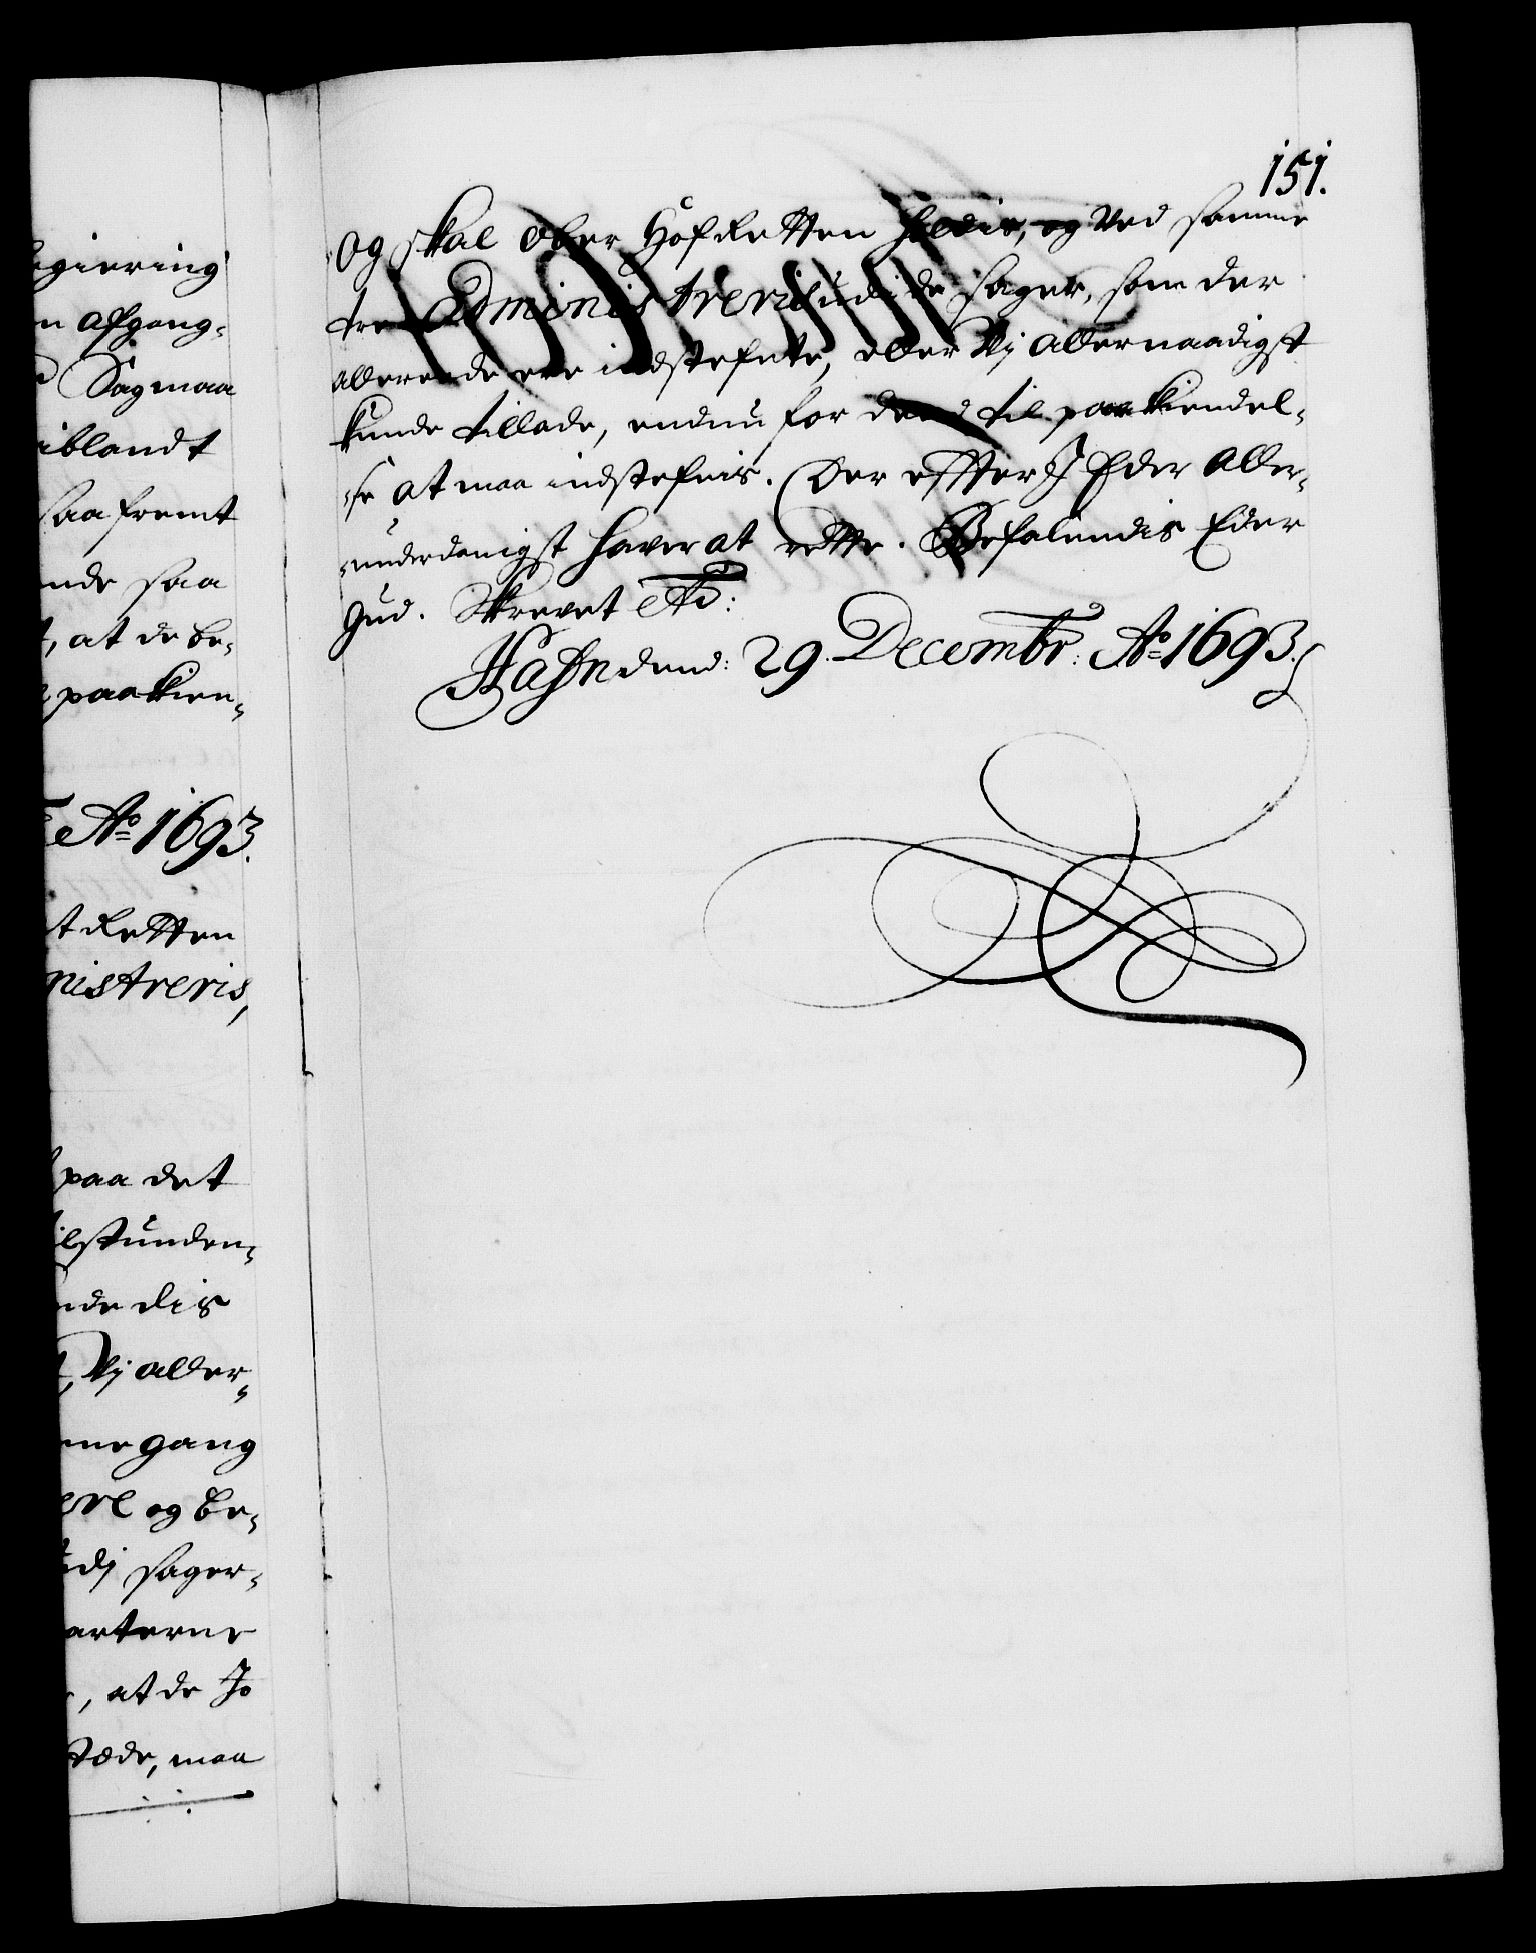 egiering
n afgang-
Sag maa
iblandt
saa fremt
nde saa
, at de be-
paakien-
Ao 1693.
t Retten
nistreris,
paa det
ilstunden-
nde Dis
, Vj aller-
me gang
ere og be-
udj sager-
arterne
, at de Jo
stæde, maa
151.
Og skal Ober Hof Retten holdis, og Ved samme
tre Administreris udi de sager, som der
allereede ere indstefnte, eller Vj allernaadigst
kunde tillade, endnu for dend til paakiendel-
se at maa indstefnis. Der effter I Eder aller-
underdanigst haver at rette. Befalendis Eder
Gud. Skrevet etc:
Hafn dend: 29. Decembr: Ao 1693.